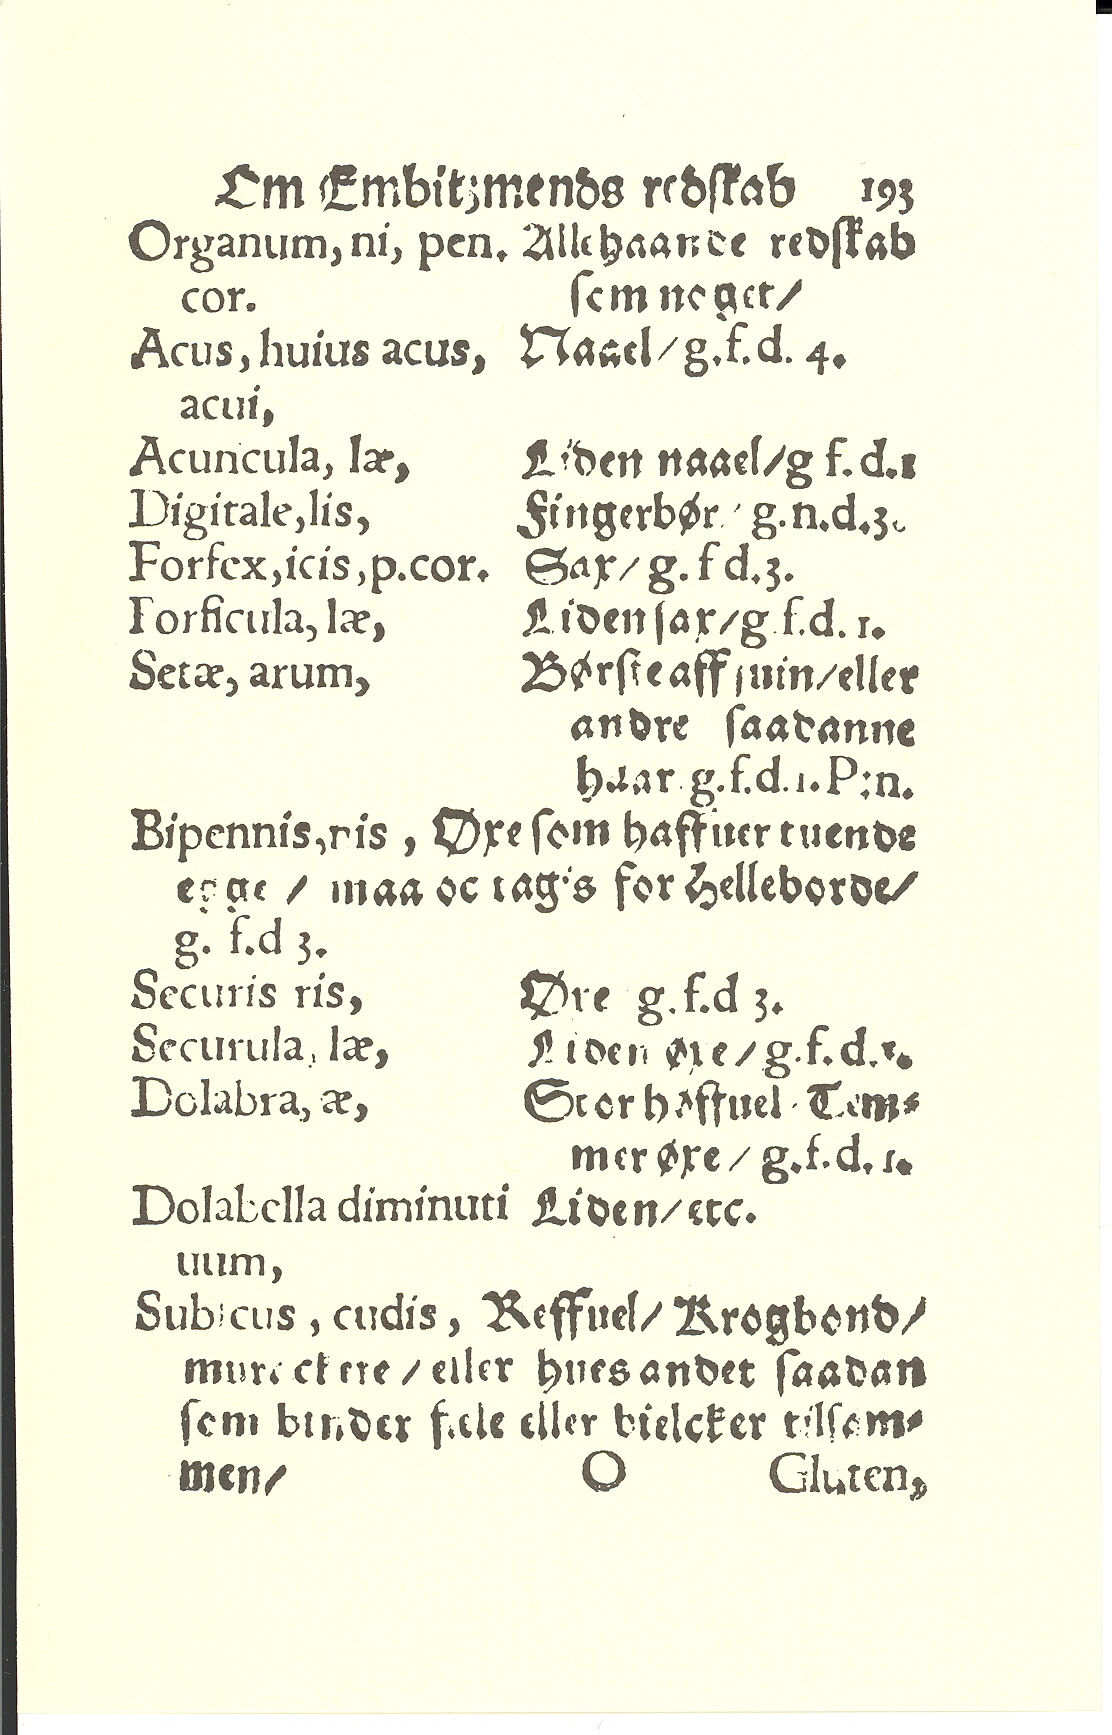 Om Embitzmends redskab 193
Organum, ni, pen. Allehaande redskab
cor. som noget/
Acus, huius acus, Naael/ g.f.d. 4.
acui,
Acuncula, læ, Liden naael/ g f. d.1
Digitale, lis, Fingerbør/ g.n.d.3.
Forfex, icis, p.cor. Sax/ g. f d.3.
Forficula, læ, Liden sax/ g f.d. 1.
Setæ, arum, Børste aff suin/ eller
andre saadanne
haar g.f.d.1. P:n.
Bipennis, nis, Øxe som haffuer tuende
egge / maa oc tagis for Helleborde/
g. f.d 3.
Securis ris, Øxe g.f.d 3.
Securula, læ, Liden øxe/ g.f.d.1.
Dolabra, æ, Stor høffuel Tem⸗
mer øxe/ g.f.d.1.
Dolabella diminuti Liden/ etc.
uum,
Subscus, cudis, Reffuel/ Krogbond/
mure / eller hues andet saadan
som binder fiele eller bielcker tilsom⸗
men/ O Gluten,